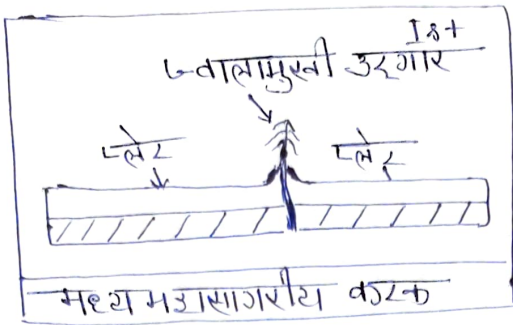 Ist
ज्वालामुखी उदगार
प्लेट प्लेट
मध्य महासागरीय कटक